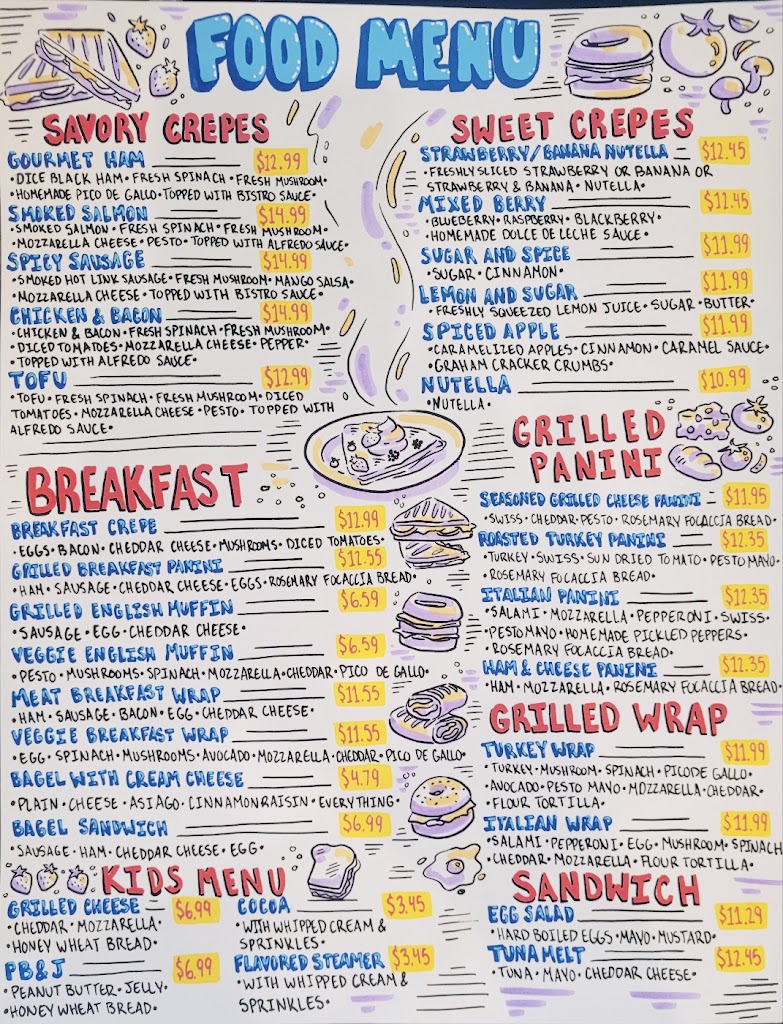 FOOD MENU
SAVORY CREPES
GOURMET HAM $12.99
•DICE BLACK HAM•FRESH SPINACH•FRESH MUSHROOM•
•HOMEMADE PICO DE GALLO•TOPPED WITH BISTRO SAUCE•
SMOKED SALMON $14.99
•SMOKED SALMON•FRESH SPINACH•FRESH MUSHROOM•
•MOZZARELLA CHEESE•PESTO•TOPPED WITH ALFREDO SAUCE•
SPICY SAUSAGE $14.99
•SMOKED HOT LINK SAUSAGE•FRESH MUSHROOM•MANGO SALSA•
•MOZZARELLA CHEESE•TOPPED WITH BISTRO SAUCE•
CHICKEN & BACON $14.99
CHICKEN & BACON•FRESH SPINACH•FRESH MUSHROOM•
•DICED TOMATOES•MOZZARELLA CHEESE•PEPPER•
•TOPPED WITH ALFREDO SAUCE•
TOFU $12.99
•TOFU•FRESH SPINACH•FRESH MUSHROOM•DICED
TOMATOES•MOZZARELLA CHEESE•PESTO•TOPPED WITH
ALFREDO SAUCE•
SWEET CREPES
STRAWBERRY/BANANA NUTELLA $12.45
•FRESHLY SLICED STRAWBERRY OR BANANA OR
STRAWBERRY & BANANA•NUTELLA•
MIXED BERRY $12.45
•BLUEBERRY•RASPBERRY•BLACKBERRY•
•HOMEMADE DOLCE DE LECHE SAUCE•
SUGAR AND SPICE $11.99
•SUGAR•CINNAMON•
LEMON AND SUGAR $11.99
•FRESHLY SQUEEZED LEMON JUICE•SUGAR•BUTTER•
SPICED APPLE $11.99
•CARAMELIZED APPLES•CINNAMON•CARAMEL SAUCE•
•GRAHAM CRACKER CRUMBS•
NUTELLA $10.99
•NUTELLA•
BREAKFAST
BREAKFAST CREPE $12.99
•EGGS•BACON•CHEDDAR CHEESE•MUSHROOMS•DICED TOMATOES•
GRILLED BREAKFAST PANINI $12.55
•HAM•SAUSAGE•CHEDDAR CHEESE•EGGS•ROSEMARY FOCACCIA BREAD•
GRILLED ENGLISH MUFFIN $6.59
•SAUSAGE•EGG•CHEDDAR CHEESE•
VEGGIE ENGLISH MUFFIN $6.59
•PESTO•MUSHROOMS•SPINACH•MOZZARELLA•CHEDDAR•PICO DE GALLO•
MEAT BREAKFAST WRAP $11.55
•HAM•SAUSAGE•BACON•EGG•CHEDDAR CHEESE•
VEGGIE BREAKFAST WRAP $11.55
•EGG•SPINACH•MUSHROOMS•AVOCADO•MOZZARELLA•CHEDDAR•PICO DE GALLO•
BAGEL WITH CREAM CHEESE $4.79
•PLAIN•CHEESE•ASIAGO•CINNAMON RAISIN•EVERYTHING•
BAGEL SANDWICH $6.99
•SAUSAGE•HAM•CHEDDAR CHEESE•EGG•
GRILLED
PANINI
SEASONED GRILLED CHEESE PANINI $11.95
•SWISS•CHEDDAR•PESTO•ROSEMARY FOCACCIA BREAD•
ROASTED TURKEY PANINI $12.35
•TURKEY•SWISS•SUN DRIED TOMATO•PESTO MAYO•
•ROSEMARY FOCACCIA BREAD•
ITALIAN PANINI $12.35
•SALAMI•MOZZARELLA•PEPPERONI•SWISS•
•PESTO MAYO•HOMEMADE PICKLED PEPPERS•
•ROSEMARY FOCACCIA BREAD•
HAM & CHEESE PANINI $12.35
•HAM•MOZZARELLA•ROSEMARY FOCACCIA BREAD•
GRILLED WRAP
TURKEY WRAP $11.99
•TURKEY•MUSHROOM•SPINACH•PICO DE GALLO•
•AVOCADO•PESTO MAYO•MOZZARELLA•CHEDDAR•
•FLOUR TORTILLA•
ITALIAN WRAP $11.99
•SALAMI•PEPPERONI•EGG•MUSHROOM•SPINACH
•CHEDDAR•MOZZARELLA•FLOUR TORTILLA•
KIDS MENU
GRILLED CHEESE $6.99
•CHEDDAR•MOZZARELLA•
•HONEY WHEAT BREAD•
PB&J $6.99
•PEANUT BUTTER•JELLY•
•HONEY WHEAT BREAD•
COCOA $3.45
•WITH WHIPPED CREAM &
SPRINKLES•
FLAVORED STEAMER $3.45
•WITH WHIPPED CREAM &
SPRINKLES•
SANDWICH
EGG SALAD $11.29
•HARD BOILED EGGS•MAYO•MUSTARD•
TUNA MELT $12.45
•TUNA•MAYO•CHEDDAR CHEESE•